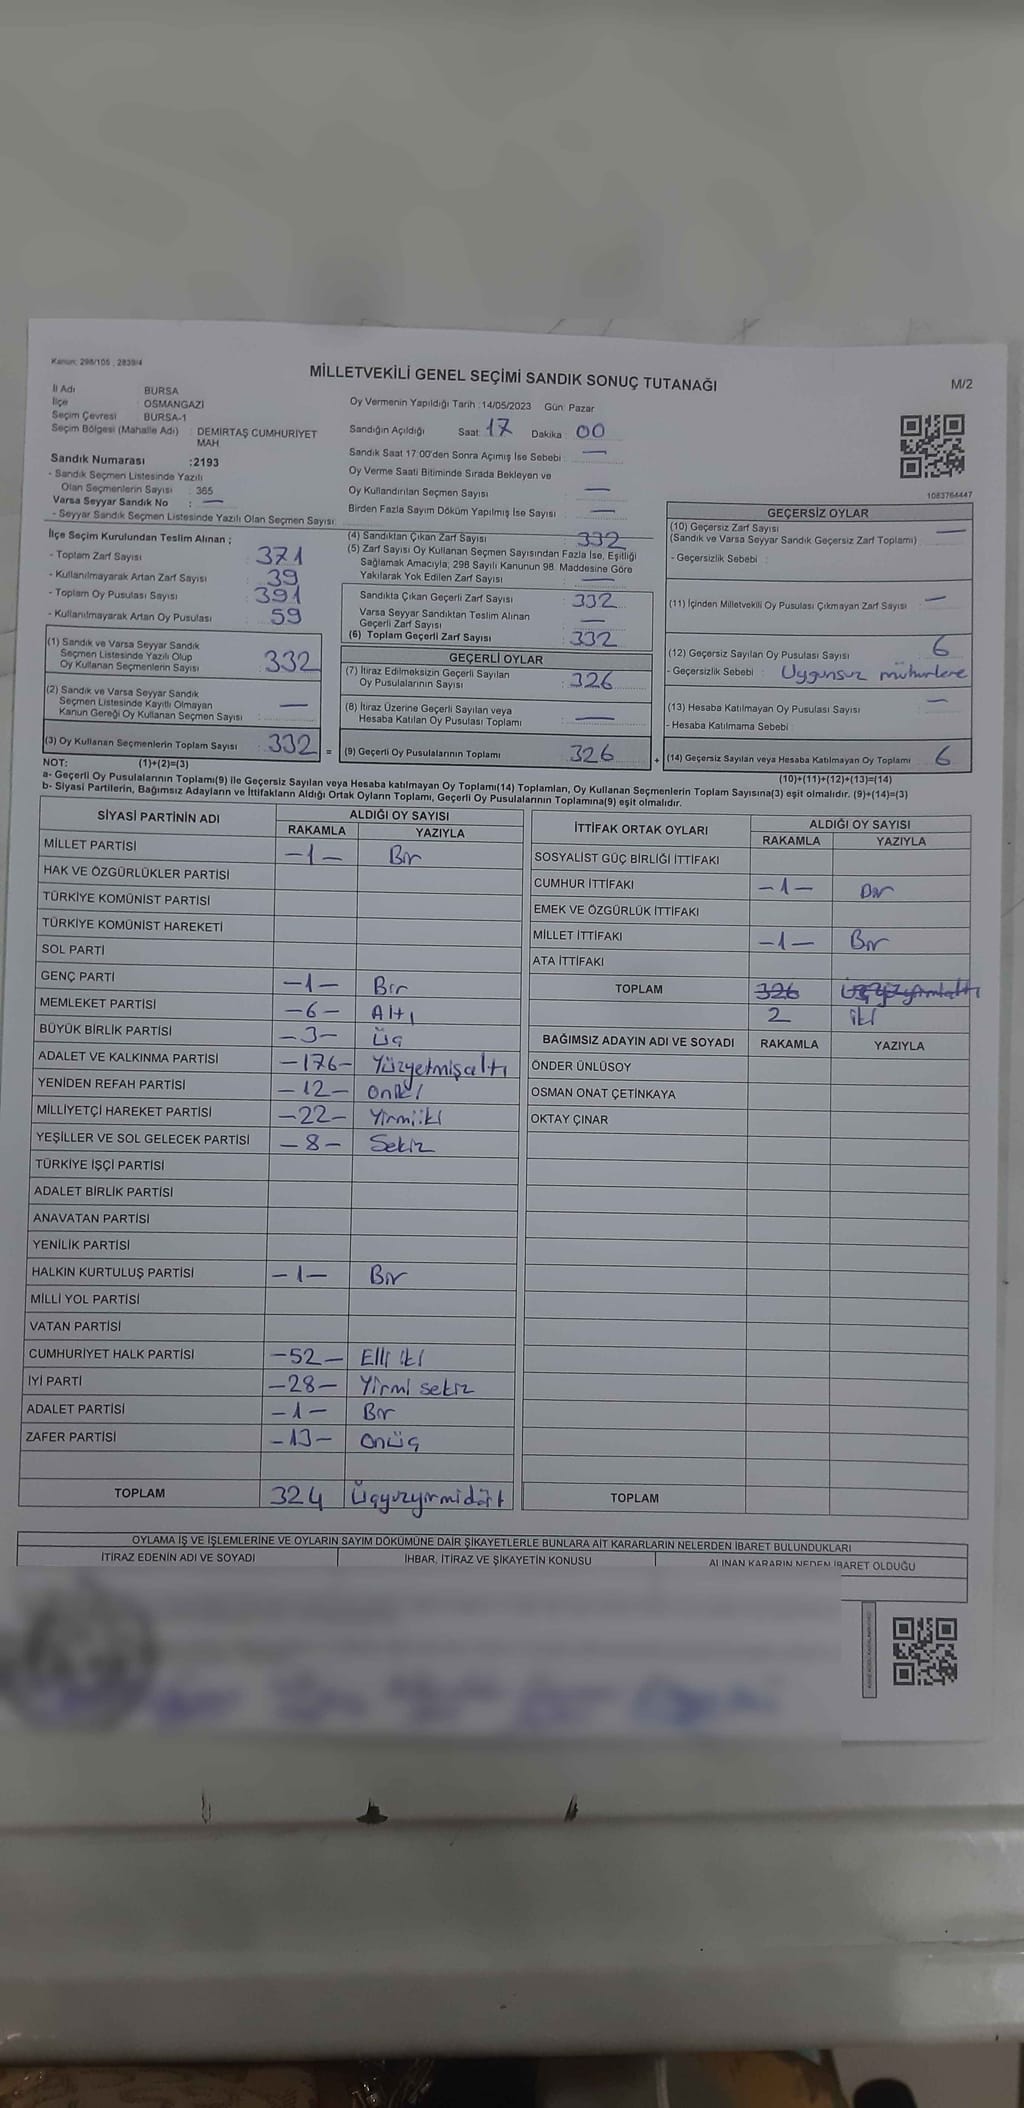 Kanun: 298/105 , 2839/4
MİLLETVEKİLİ GENEL SEÇİMİ SANDIK SONUÇ TUTANAĞI
M/2
İl Adı : BURSA
İlçe : OSMANGAZİ
Seçim Çevresi : BURSA-1
Seçim Bölgesi (Mahalle Adı) : DEMİRTAŞ CUMHURİYET MAH
Sandık Numarası :2193
- Sandık Seçmen Listesinde Yazılı
Olan Seçmenlerin Sayısı : 365
Varsa Seyyar Sandık No : —
- Seyyar Sandık Seçmen Listesinde Yazılı Olan Seçmen Sayısı :
Oy Vermenin Yapıldığı Tarih :14/05/2023 Gün: Pazar
Sandığın Açıldığı Saat: 17 Dakika: 00
Sandık Saat 17:00'den Sonra Açımış İse Sebebi : —
Oy Verme Saati Bitiminde Sırada Bekleyen ve
Oy Kullandırılan Seçmen Sayısı : —
Birden Fazla Sayım Döküm Yapılmış İse Sayısı : —
1083764447
İlçe Seçim Kurulundan Teslim Alınan ;
- Toplam Zarf Sayısı : 371
- Kullanılmayarak Artan Zarf Sayısı : 39
- Toplam Oy Pusulası Sayısı : 391
- Kullanılmayarak Artan Oy Pusulası : 59
(1) Sandık ve Varsa Seyyar Sandık
Seçmen Listesinde Yazılı Olup
Oy Kullanan Seçmenlerin Sayısı : 332
(2) Sandık ve Varsa Seyyar Sandık
Seçmen Listesinde Kayıtlı Olmayan
Kanun Gereği Oy Kullanan Seçmen Sayısı : —
(3) Oy Kullanan Seçmenlerin Toplam Sayısı : 332 =
(4) Sandıktan Çıkan Zarf Sayısı : 332
(5) Zarf Sayısı Oy Kullanan Seçmen Sayısından Fazla İse, Eşitliği
Sağlamak Amacıyla; 298 Sayılı Kanunun 98. Maddesine Göre
Yakılarak Yok Edilen Zarf Sayısı : —
Sandıkta Çıkan Geçerli Zarf Sayısı : 332
Varsa Seyyar Sandıktan Teslim Alınan
Geçerli Zarf Sayısı : —
(6) Toplam Geçerli Zarf Sayısı : 332
GEÇERLİ OYLAR
(7) İtiraz Edilmeksizin Geçerli Sayılan
Oy Pusulalarının Sayısı : 326
(8) İtiraz Üzerine Geçerli Sayılan veya
Hesaba Katılan Oy Pusulası Toplamı : —
(9) Geçerli Oy Pusulalarının Toplamı : 326 +
GEÇERSİZ OYLAR
(10) Geçersiz Zarf Sayısı —
(Sandık ve Varsa Seyyar Sandık Geçersiz Zarf Toplamı) :
- Geçersizlik Sebebi :
(11) İçinden Milletvekili Oy Pusulası Çıkmayan Zarf Sayısı : —
(12) Geçersiz Sayılan Oy Pusulası Sayısı : 6
- Geçersizlik Sebebi : Uygunsuz mühürleme
(13) Hesaba Katılmayan Oy Pusulası Sayısı : —
- Hesaba Katılmama Sebebi :
(14) Geçersiz Sayılan veya Hesaba Katılmayan Oy Toplamı : 6
NOT: (1)+(2)=(3)
(10)+(11)+(12)+(13)=(14)
a- Geçerli Oy Pusulalarının Toplamı(9) ile Geçersiz Sayılan veya Hesaba katılmayan Oy Toplamı(14) Toplamları, Oy Kullanan Seçmenlerin Toplam Sayısına(3) eşit olmalıdır. (9)+(14)=(3)
b- Siyasi Partilerin, Bağımsız Adayların ve İttifakların Aldığı Ortak Oyların Toplamı, Geçerli Oy Pusulalarının Toplamına(9) eşit olmalıdır.
SİYASİ PARTİNİN ADI ALDIĞI OY SAYISI
RAKAMLA YAZIYLA
MİLLET PARTİSİ -1- Bir
HAK VE ÖZGÜRLÜKLER PARTİSİ
TÜRKİYE KOMÜNİST PARTİSİ
TÜRKİYE KOMÜNİST HAREKETİ
SOL PARTİ
GENÇ PARTİ -1- Bir
MEMLEKET PARTİSİ -6- Altı
BÜYÜK BİRLİK PARTİSİ -3- Üç
ADALET VE KALKINMA PARTİSİ -176- Yüzyetmişaltı
YENİDEN REFAH PARTİSİ -12- Oniki
MİLLİYETÇİ HAREKET PARTİSİ -22- Yirmiiki
YEŞİLLER VE SOL GELECEK PARTİSİ -8- Sekiz
TÜRKİYE İŞÇİ PARTİSİ
ADALET BİRLİK PARTİSİ
ANAVATAN PARTİSİ
YENİLİK PARTİSİ
HALKIN KURTULUŞ PARTİSİ -1- Bir
MİLLİ YOL PARTİSİ
VATAN PARTİSİ
CUMHURİYET HALK PARTİSİ -52- Elli iki
İYİ PARTİ -28- Yirmi sekiz
ADALET PARTİSİ -1- Bir
ZAFER PARTİSİ -13- Onüç
TOPLAM 324 Üçyüzyirmidört
İTTİFAK ORTAK OYLARI ALDIĞI OY SAYISI
RAKAMLA YAZIYLA
SOSYALİST GÜÇ BİRLİĞİ İTTİFAKI
CUMHUR İTTİFAKI -1- Bir
EMEK VE ÖZGÜRLÜK İTTİFAKI
MİLLET İTTİFAKI -1- Bir
ATA İTTİFAKI
TOPLAM 326 Üçyüzyirmialtı
2 iki
BAĞIMSIZ ADAYIN ADI VE SOYADI RAKAMLA YAZIYLA
ÖNDER ÜNLÜSOY
OSMAN ONAT ÇETİNKAYA
OKTAY ÇINAR
TOPLAM
OYLAMA İŞ VE İŞLEMLERİNE VE OYLARIN SAYIM DÖKÜMÜNE DAİR ŞİKAYETLERLE BUNLARA AİT KARARLARIN NELERDEN İBARET BULUNDUKLARI
İTİRAZ EDENİN ADI VE SOYADI İHBAR, İTİRAZ VE ŞİKAYETİN KONUSU ALINAN KARARIN NEDEN İBARET OLDUĞU